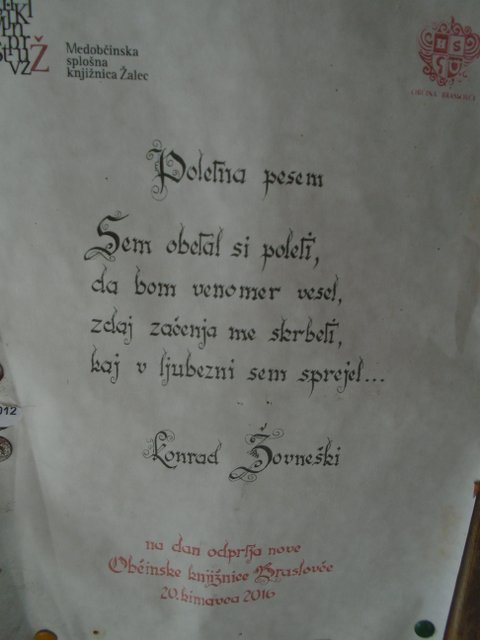 Medobčinska
splošna
knjižnica Žalec
OBČINA BRASLOVČE
Poletna pesem
Sem obetal si poleti,
da bom venomer vesel,
zdaj začenja me skrbeti,
kaj v ljubezni sem sprejel...
Konrad Žovneški
na dan odprtja nove
Občinske knjižnice Braslovče
20. kimavca 2016
012